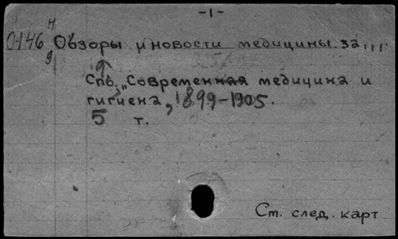 -1-
0146 Обзоры и новости медицины за...
Спб, „Современная медицина и
гигиена, 1899-1905.
5 т.
См. след. карт